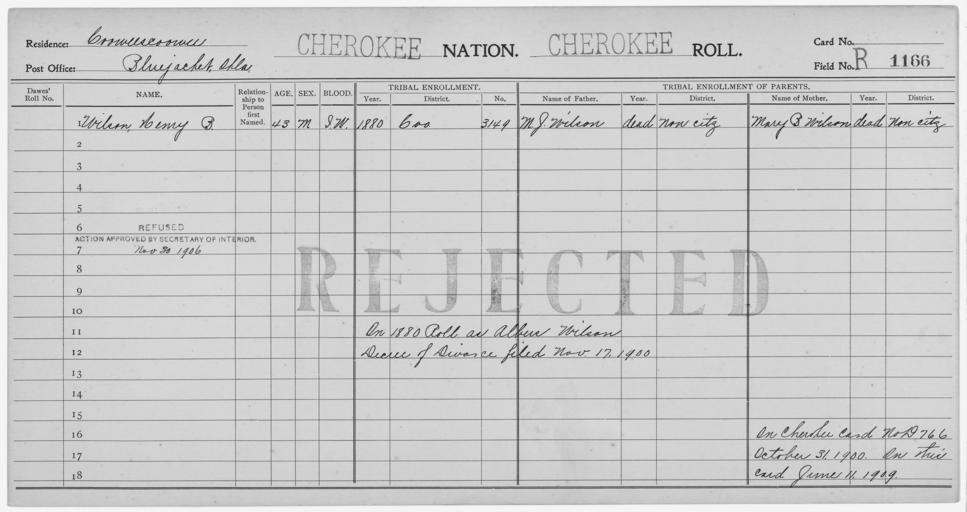 Residence: Cooweescoowee
CHEROKEE NATION. CHEROKEE ROLL.
Card No.
Post Office: Bluejacket, Okla.
Field No. R 1166
Dawes' Roll No.
NAME.
Relationship to Person first Named.
AGE.
SEX.
BLOOD.
TRIBAL ENROLLMENT.
Year. District. No.
TRIBAL ENROLLMENT OF PARENTS.
Name of Father. Year. District. Name of Mother. Year. District.
1 Wilson, Henry B. 43 M I.W. 1880 Coo 3149 M J Wilson dead non citz Mary B Wilson dead non citz
2
3
4
5
6 REFUSED
ACTION APPROVED BY SECRETARY OF INTERIOR.
7 Nov 30 1906
REJECTED
8
9
10
11 On 1880 Roll as Wilson
12 Decree of Divorce filed Nov 17, 1900
13
14
15
16 On Cherokee Card No D 766
17 October 31, 1900. On this
18 card June 11, 1909.